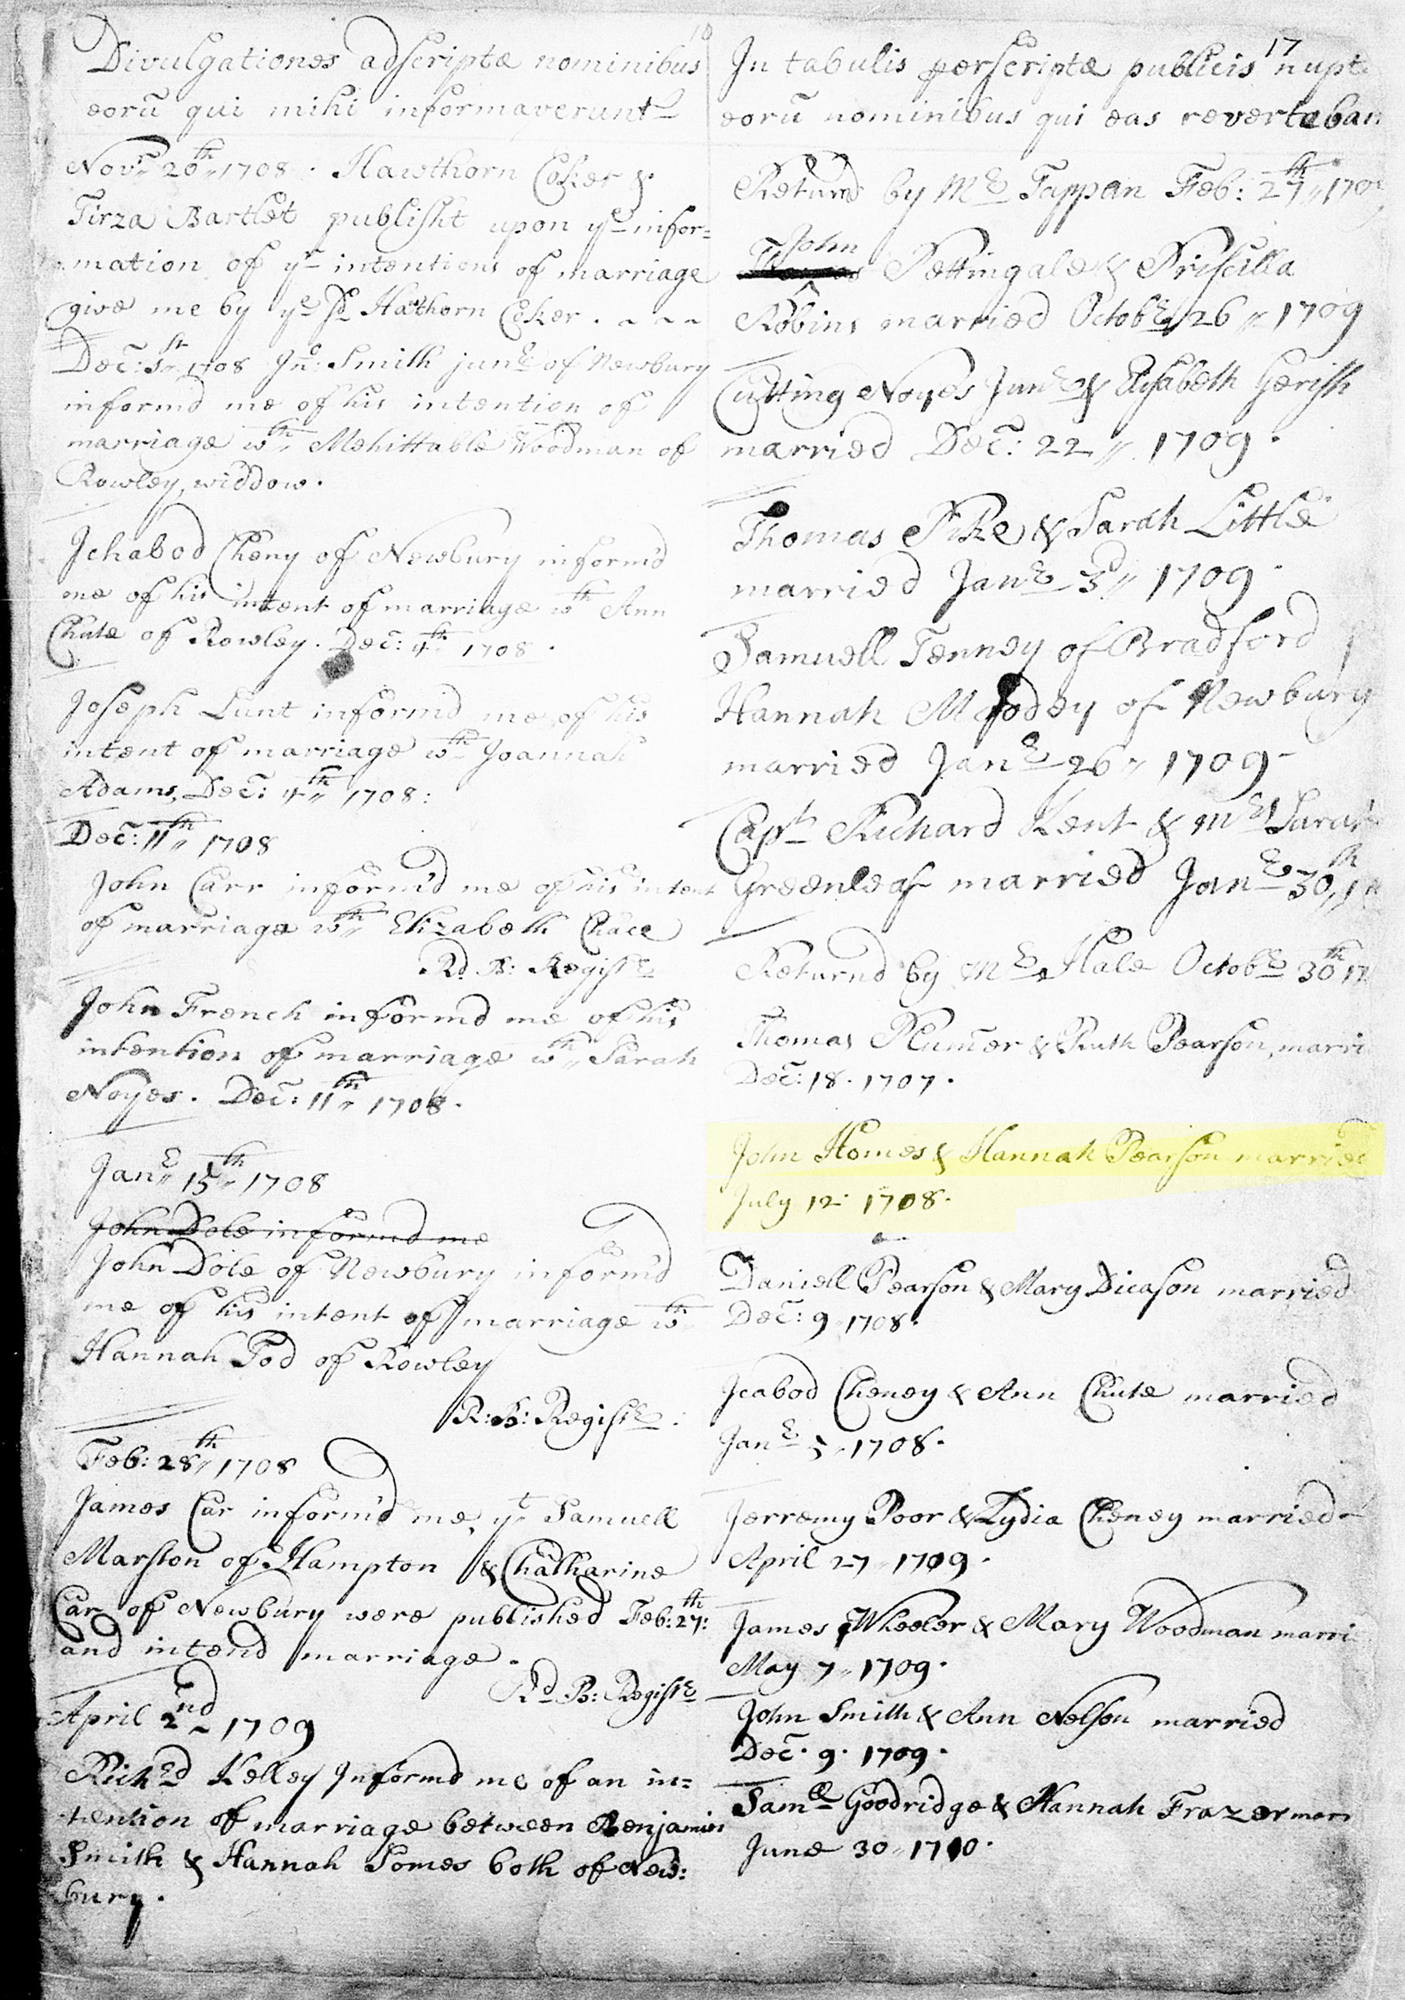 Divulgationes adscriptæ nominibus
eorũ qui mihi informaverunt
Novr 20th 1708. Hawthorn Coker &
Tirza Bartlet publisht upon ye infor=
mation of ye intentions of marriage
give me by ye sd Hathorn Coker.
Dec: 1st 1708 Jno: Smith junr of Newbury
informd me of his intention of
marriage wth Mehittable Woodman of
Rowley, widdow.
Ichabod Cheny of Newbury inform'd
me of his intent of marriage wth Ann
Chute of Rowley. Dec: 4th 1708.
Joseph Lunt inform'd me of his
intent of marriage wth Joannah
Adams, Dec: 4th 1708:
Dec: 11th 1708
John Carr inform'd me of his intent
of marriage wth Elizabeth Chace
Rd B: Registr
John French informd me of his
intention of marriage wth Sarah
Noyes. Dec: 11th 1708.
Janr 15th 1708
John Dole informd me
John Dole of Newbury inform'd
me of his intent of marriage wth
Hannah Tod of Rowley
R: B: Registr:
Feb: 28th 1708
James Car inform'd me, yt Samuell
Marston of Hampton & Chatharine
Car of Newbury were published Feb: 27th:
and intend marriage.
Rd B: Registr
April 2nd 1709
Richrd Kelley Informd me of an in=
tention of marriage between Benjamin
Smith & Hannah Somes both of New:
bury.
17
In tabulis perscriptæ publicis nupt
eorũ nominibus qui eas revertaban
Returnd by Mr Tappan Feb: 27th 170
John
Pettingale & Priscilla
Robins married Octobr 26 1709
Cutting Noyes Junr & Elisabeth Gerish
married Dec: 22 1709.
Thomas Pike & Sarah Little
married Janr 3d 1709.
Samuell Tenney of Bradford
Hannah Modey of Newbury
married Janr 26 1709
Capt Richard Kent & Mrs Sarah
Greenleaf married Janr 30th, 1
Returnd by Mr Hale Octobr 30th 17
Thomas Plumer & Ruth Pearson, marri
Dec: 18. 1707.
John Homes & Hannah Pearson married
July 12: 1708.
Daniell Pearson & Mary Dicason married
Dec: 9 1708.
Icabod Cheney & Ann Chute married
Janr 5 1708.
Jerremy Poor & Lydia Cheney married
April 27 1709.
James Wheeler & Mary Woodman marri
May 7 1709.
John Smith & Ann Nelson married
Dec. 9. 1709.
Samll Goodridge & Hannah Frazer marr
June 30 1710.